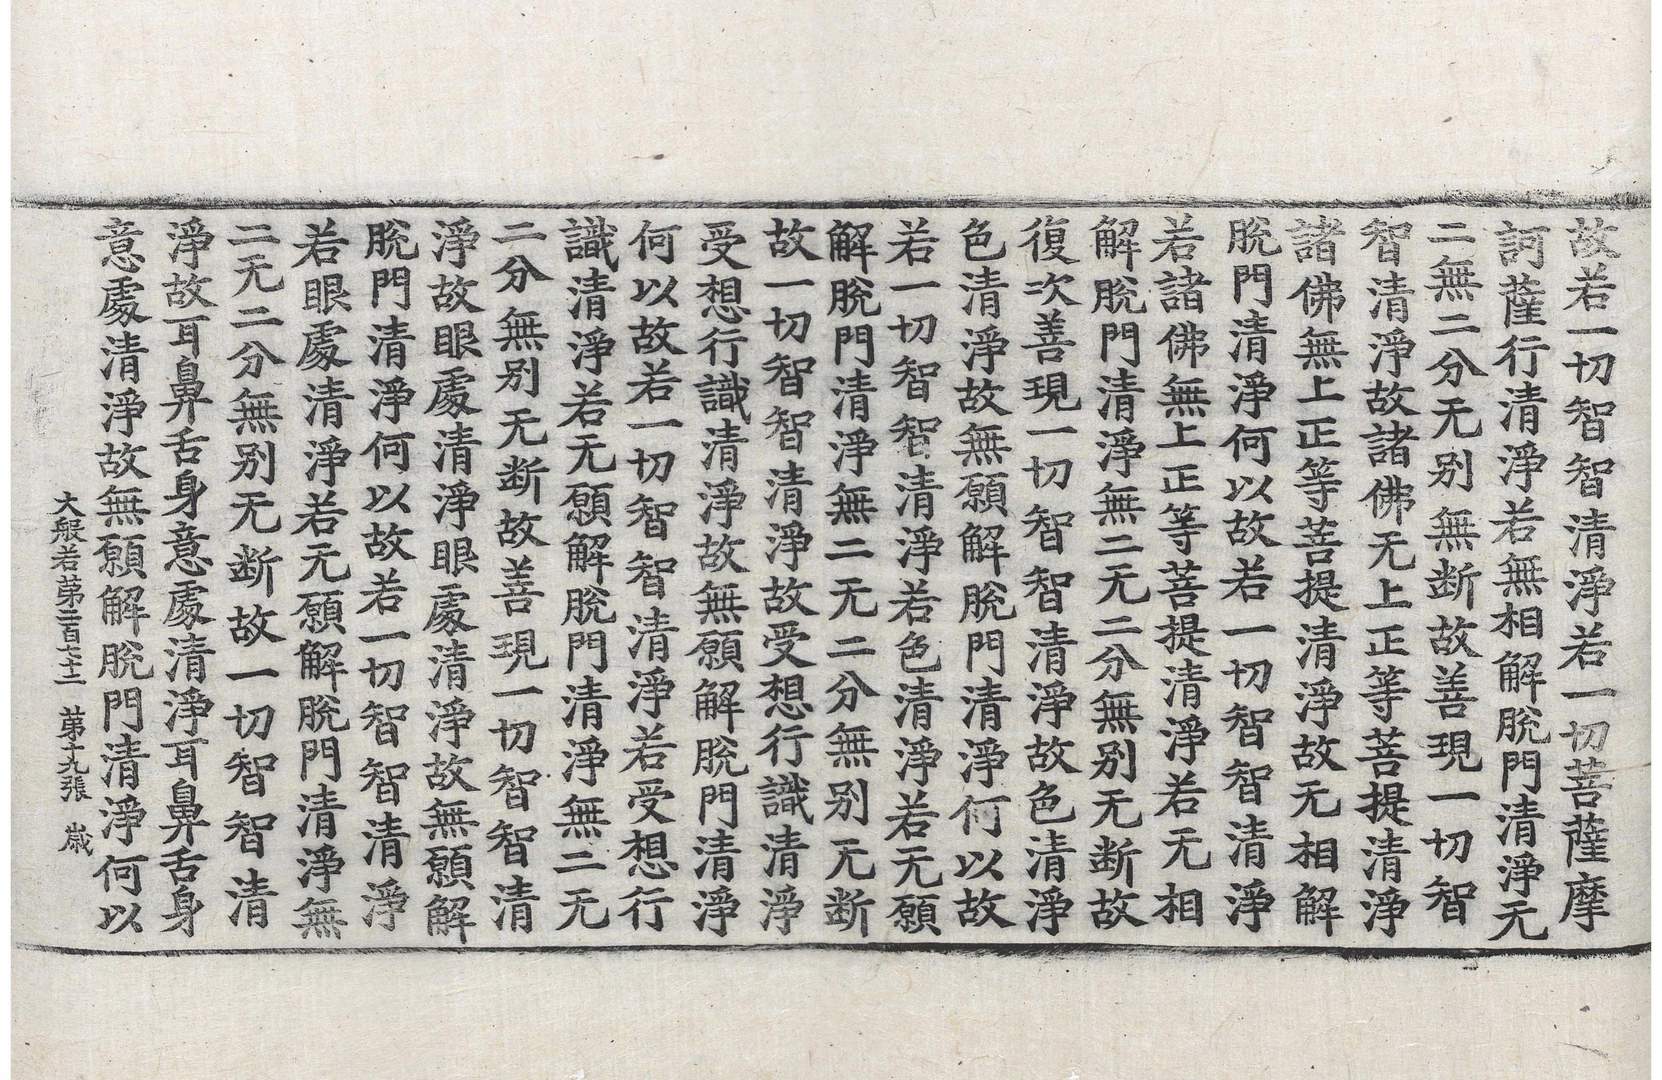 故若一切智智清淨若一切菩薩摩
訶薩行清淨若無相解脫門清淨无
二無二分无别無断故善現一切智
智清淨故諸佛无上正等菩提清淨
諸佛無上正等菩提清淨故无相解
脫門清淨何以故若一切智智清淨
若諸佛無上正等菩提清淨若无相
解脫門清淨無二无二分無别无断故
復次善現一切智智清淨故色清淨
色清淨故無願解脫門清淨何以故
若一切智智清淨若色清淨若无願
解脫門清淨無二无二分無别无断
故一切智智清淨故受想行識清淨
受想行識清淨故無願解脫門清淨
何以故若一切智智清淨若受想行
識清淨若无願解脫門清淨無二无
二分無别无断故善現一切智智清
淨故眼處清淨眼處清淨故無願解
脫門清淨何以故若一切智智清淨
若眼處清淨若无願解脫門清淨無
二无二分無别无断故一切智智清
淨故耳鼻舌身意處清淨耳鼻舌身
意處清淨故無願解脫門清淨何以
大般若苐二百七十二 苐十九張 歲